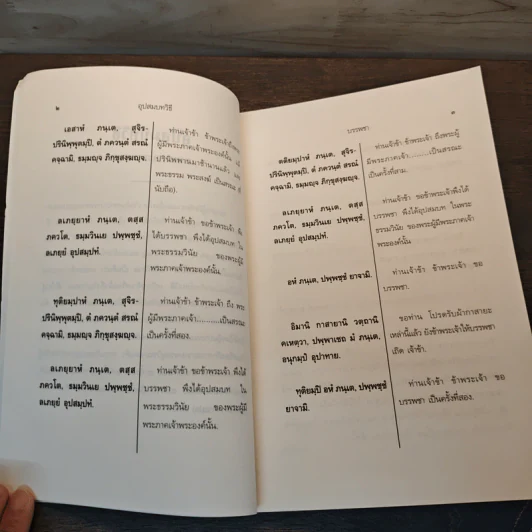 ๒
อุปสมบทวิธี
เอสาหํ ภนฺเต, สุจิร-
ปรินิพฺพุตมฺปิ, ตํ ภควนฺตํ สรณํ
คจฺฉามิ, ธมฺมญฺจ ภิกฺขุสงฺฆญฺจ.
ท่านเจ้าข้า ข้าพระเจ้าถึงพระ
ผู้มีพระภาคเจ้าพระองค์นั้น แม้
ปรินิพพานมาช้านานแล้ว
พระธรรม พระสงฆ์ เป็นสรณะ
นับถือ).
ลเภยฺยาหํ ภนฺเต, ตสฺส
ภควโต, ธมฺมวินเย ปพฺพชฺชํ,
ลเภยฺยํ อุปสมฺปทํ.
ท่านเจ้าข้า ขอข้าพระเจ้า พึง
ได้บรรพชา พึงได้อุปสมบท ใน
พระธรรมวินัย ของพระผู้มี
พระภาคเจ้าพระองค์นั้น.
ทุติยมฺปาหํ ภนฺเต, สุจิร-
ปรินิพฺพุตมฺปิ, ตํ ภควนฺตํ สรณํ
คจฺฉามิ, ธมฺมญฺจ ภิกฺขุสงฺฆญฺจ.
ท่านเจ้าข้า ข้าพระเจ้า ถึง พระ
ผู้มีพระภาคเจ้า..........เป็นสรณะ
เป็นครั้งที่สอง.
ลเภยฺยาหํ ภนฺเต, ตสฺส
ภควโต, ธมฺมวินเย ปพฺพชฺชํ,
ลเภยฺยํ อุปสมฺปทํ.
ท่านเจ้าข้า ขอข้าพระเจ้า พึงได้
บรรพชา พึงได้อุปสมบท ใน
พระธรรมวินัย ของพระผู้มี
พระภาคเจ้าพระองค์นั้น.
บรรพชา
๓
ตติยมฺปาหํ ภนฺเต, สุจิร-
ปรินิพฺพุตมฺปิ, ตํ ภควนฺตํ สรณํ
คจฺฉามิ, ธมฺมญฺจ ภิกฺขุสงฺฆญฺจ.
ท่านเจ้าข้า ข้าพระเจ้า ถึงพระผู้
มีพระภาคเจ้า..........เป็นสรณะ
เป็นครั้งที่สาม.
ลเภยฺยาหํ ภนฺเต, ตสฺส
ภควโต, ธมฺมวินเย ปพฺพชฺชํ,
ลเภยฺยํ อุปสมฺปทํ.
ท่านเจ้าข้า ขอข้าพระเจ้าพึงได้
บรรพชา พึงได้อุปสมบท ในพระ
ธรรมวินัย ของพระผู้มีพระภาคเจ้า
พระองค์นั้น
อหํ ภนฺเต, ปพฺพชฺชํ ยาจามิ.
ท่านเจ้าข้า ข้าพระเจ้า ขอ
บรรพชา.
อิมานิ กาสายานิ วตฺถานิ
คเหตฺวา, ปพฺพาเชถ มํ ภนฺเต,
อนุกมฺปํ อุปาทาย.
ขอท่าน โปรดรับผ้ากาสายะ
เหล่านี้แล้ว ยังข้าพระเจ้าให้บรรพชา
เถิด เจ้าข้า.
ทุติยมฺปิ อหํ ภนฺเต, ปพฺพชฺชํ
ยาจามิ.
ท่านเจ้าข้า ข้าพระเจ้า ขอ
บรรพชา เป็นครั้งที่สอง.